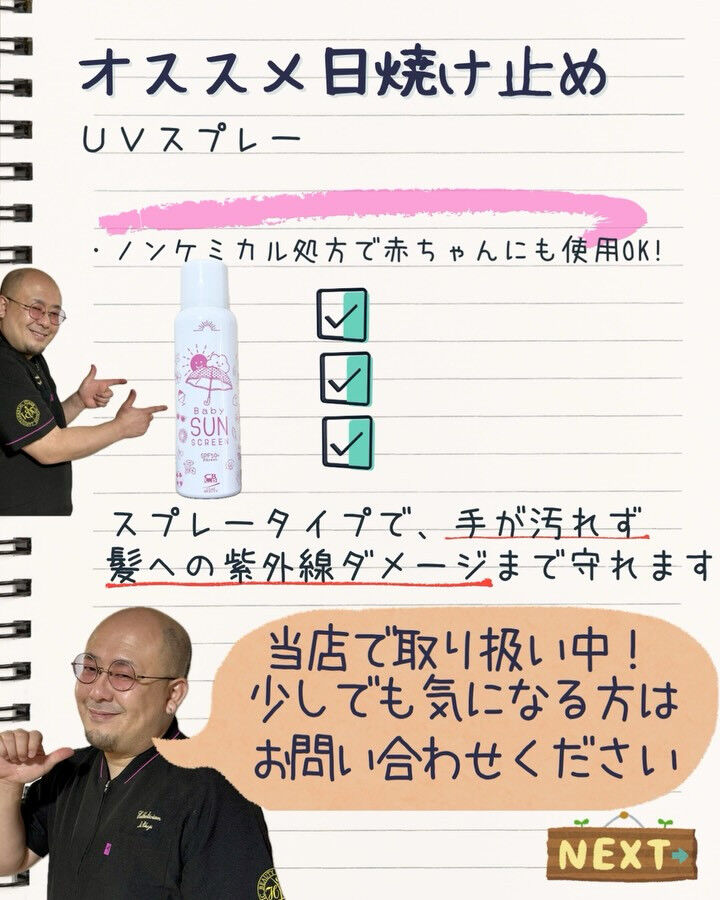 オススメ日焼け止め
UVスプレー
・ノンケミカル処方で赤ちゃんにも使用OK!
Baby
SUN
SCREEN
SPF50+
スプレータイプで、手が汚れず
髪への紫外線ダメージまで守れます
当店で取り扱い中！
少しでも気になる方は
お問い合わせください
NEXT